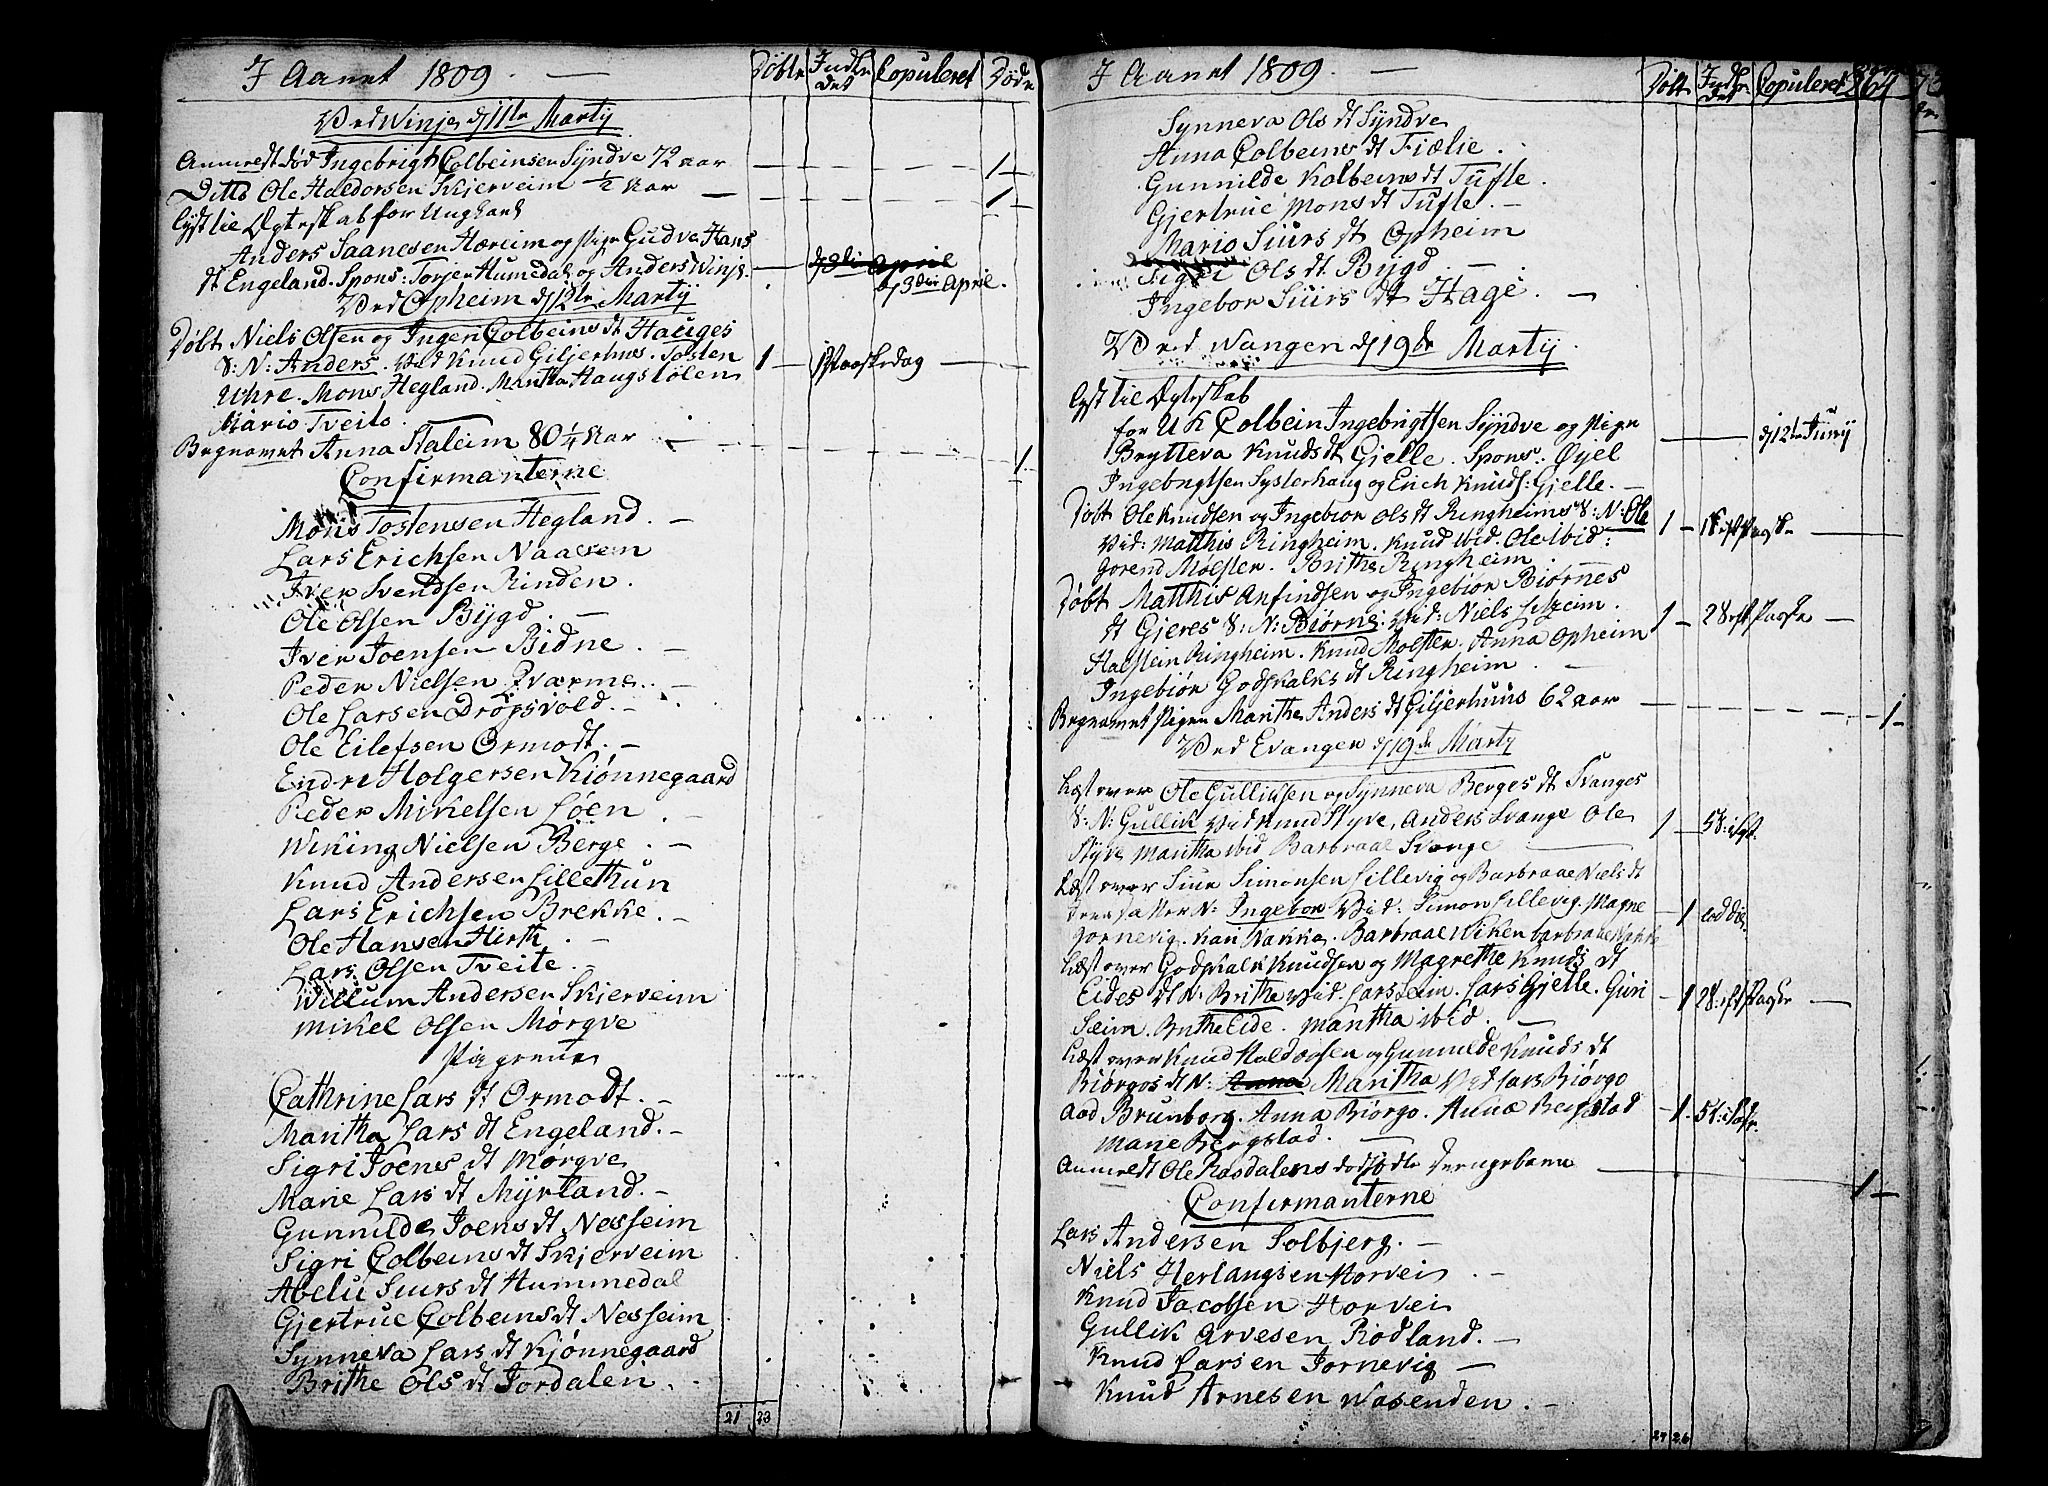 I Aaret 1809. — Døbte Indledet Copuleret Døde
Ved Winje d 11te Martij
Anmeldt død Ingebrigt Colbeinsen Syndve 72 aar 1
Ditto Ole Haldorsen Skjerveim ½ Aar 1
Lyst til Ægteskab for Ungkarl
Anders Saanesen Hæreim og Pige Gudve Hans
dt Engeland. Spons: Torjer Humedal og Anders Winje. d 3die April.
Ved Opheim d 12te Martij
Døbt Niels Olsen og Ingen Colbeins dt Hauges
S: N: Anders. Vid Knud Giljerhus. Tosten 1 — Paaskedag
Uhre. Mons Hegland. Maritha Haugstølen
Mario Tveito.
Begravet Anna Staleim 80 ¼ Aar 1
Confirmanterne
Mons Tostensen Hegland. —
Lars Erichsen Naalsem
Iver Svendsen Rinden.
Ole Olsen Bÿgd. —
Iver Joensen Bidne. —
Peder Nielsen Qvarme. —
Ole Larsen Dropsvold. —
Ole Eilefsen Ormodt. —
Endre Holgersen Kiønnegaard
Peder Mikelsen Løen. —
Wiking Nielsen Berge. —
Knud Andersen Lillethun
Lars Erichsen Brekke. —
Ole Hansen Hirth. —
Lars Olsen Tveite. —
Willum Andersen Skjerveim
Mikel Olsen Mørgve
Pigerne
Cathrine Lars dt Ormodt. —
Maritha Lars dt Engeland. —
Sigri Joens dt Mørgve
Marie Lars dt Mÿrland. —
Gunnilde Joens dt Nesheim
Sigri Colbeins dt Skjerveim
Abelu Siurs dt Hummedal
Gjertrue Colbeins dt Nesheim
Synneva Lars dt Kjønnegaard
Brithe Ols dt Jordalen.
21 23
I Aaret 1809. — Døbt Indledet Copuleret
Synneva Ols dt Sÿndve
Anna Colbeins dt Fiælie.
Gunnilde Kolbeins dt Tufte.
Gjertrue Mons dt Tufte. —
Mario Siurs dt Opheim
Sigri Ols dt Bÿgd. —
Ingebor Siurs dt Hage. —
Ved Wangen d 19de Martij
Lyst til Ægteskab
for U K Colbein Ingebrigtsen Syndve og Pige
Brytteva Knuds dt Gjelle. Spons: Øyel d 12te Junij
Ingebrigtsen Systerhaug og Erich Knuds: Gjelle. —
Døbt Ole Knudsen og Ingebior Ols dt Ringheims S: N: Ole
Vid: Matthis Ringheim. Knud ibid. Ole ibid: 1
Gorend Molster. Brithe Ringheim
Døbt Matthis Anfindsen og Ingebiør Biørnes
dt Gjeres S: N: Biørne. Vid: Niels Litzeim. 1 — 2 S: eft Paaske —
Halstein Ringheim. Knud Molster. Anna Opheim
Ingebiør Godskalks dt Ringheim. —
Begravet Pigen Maritha Anders dt Giljerhuus 62 aar 1 —
Ved Evanger d 19de Martij
Læst over Ole Gulliksen og Synneva Berges dt Svanges
S: N: Gullik Vid Knud Styve, Anders Svange Ole 1
Styve Maritha ibid Barbraae Svange
Læst over Siur Simonsen Lillevig og Barbraae Niels dt
N: Ingebor Vid: Simon Lillevig. Magne — 1 eod die.
Jornevig. Kari Nakka. Barbraae Viken Barbraae Nakke
Læst over Godskalk Knudsen og Magrethe Knuds dt
Eides dt N: Britha Vid. Lars Seim. Lars Gjelle. Guri — 1 2 S: eft Paaske —
Seim. Brithe Eide. Maritha ibid. —
Læst over Knud Haldorsen og Gunnilde Knuds dt
Biørgos dt N: Anna Maritha Vid Lars Biørgo
Aad Brunborg. Anna Biørgo. Anna Bergstad — 1
Marie Bergstad.
Anmeldt Ole Rasdalens dødfødte Drengebarn 1 —
Confirmanterne
Lars Andersen Solbjerg. —
Niels Herlaugsen Horvei. —
Knud Jacobsen Horvei
Gullik Arvesen Rødland. —
Knud Larsen Jornevig —
Knud Arnesen Wasenden. —
24 26